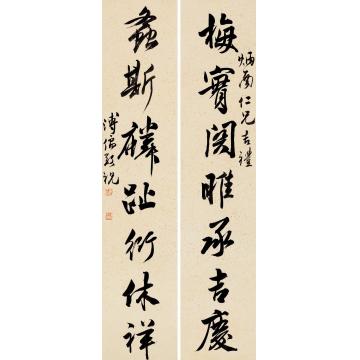 炳南仁兄吉禮
梅實關雎承吉慶
螽斯麟趾衍休祥
溥儒敬祝